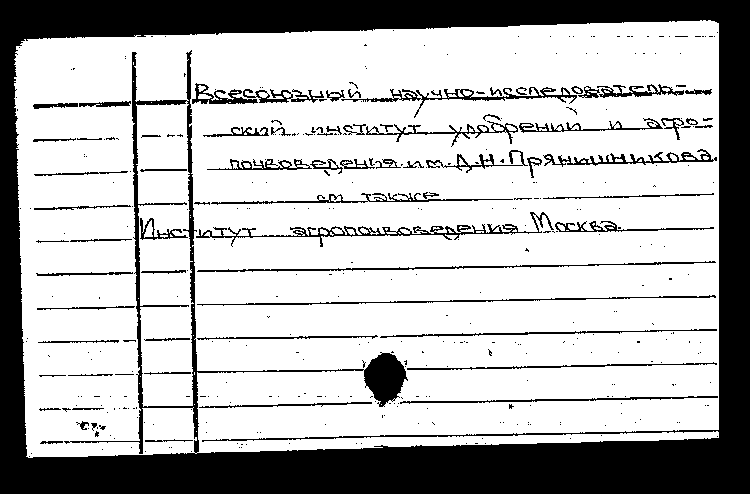 Всесоюзный научно-исследователь-
ский институт удобрений и агро-
почвоведения им. Д.Н. Прянишникова.
см также
Институт агропочвоведения. Москва